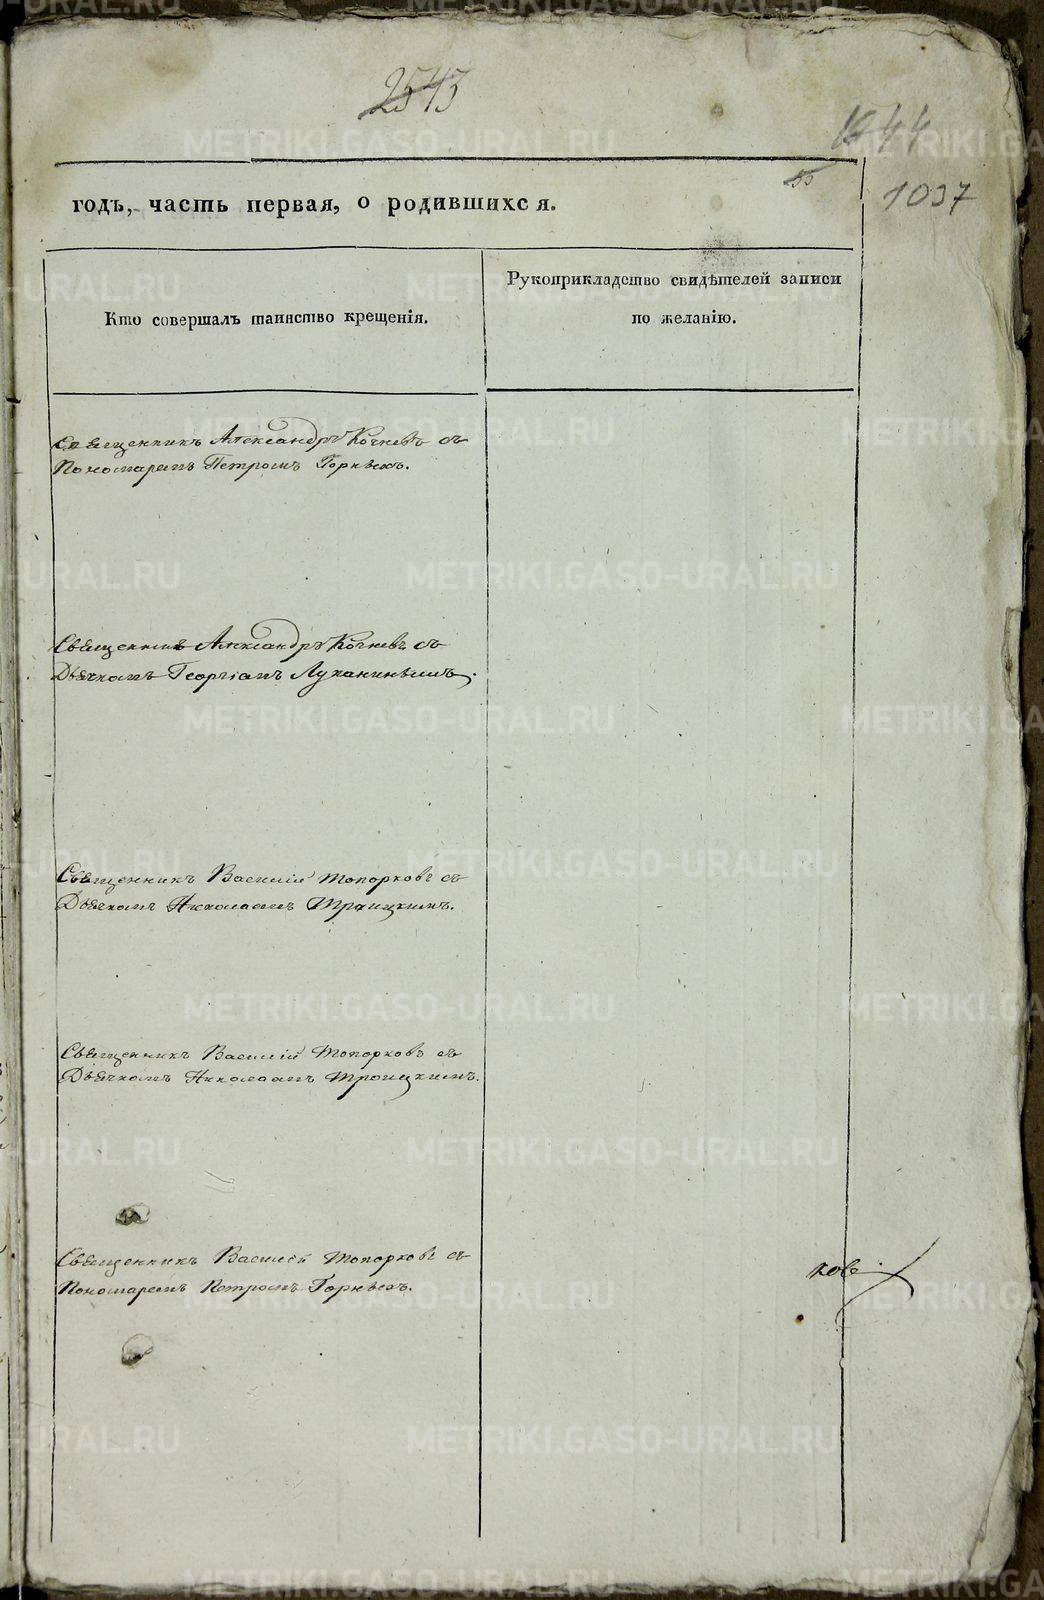 2543
1644
55
1037
годъ, часть первая, о родившихся.
Кто совершалъ таинство крещенія.
Рукоприкладство свидѣтелей записи
по желанію.
Священникъ Александръ Кочневъ съ
Пономаремъ Петромъ Горныхъ.
Священникъ Александръ Кочневъ съ
Дьячкомъ Георгіемъ Луканинымъ.
Священникъ Василій Топорковъ съ
Дьячкомъ Николаемъ Троицкимъ.
Священникъ Василій Топорковъ съ
Дьячкомъ Николаемъ Троицкимъ.
Священникъ Василей Топорковъ съ
Пономаремъ Петромъ Горныхъ.
ковъ.
METRIKI.GASO-URAL.RU